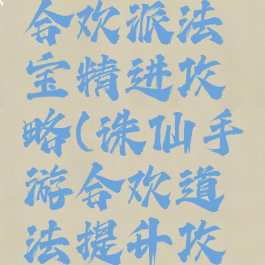 合欢派法
宝精进攻
略(诛仙手
游合欢道
法提升攻